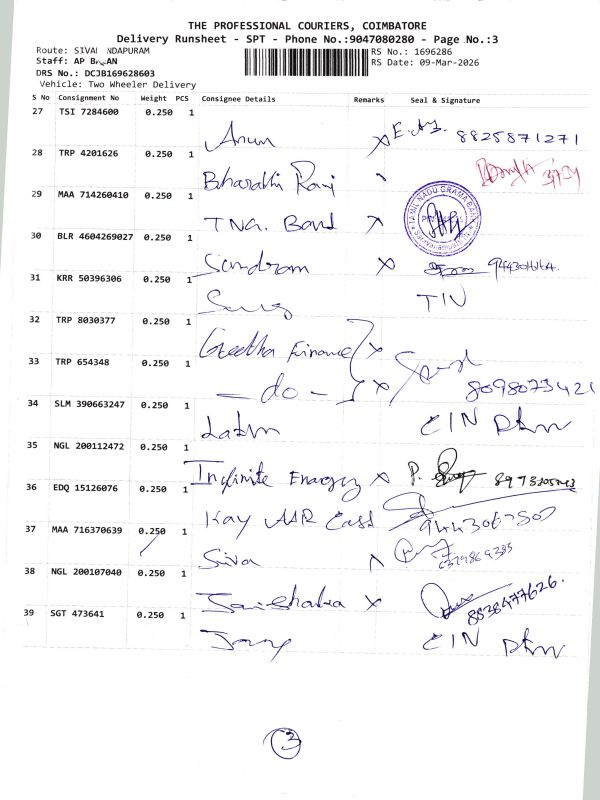 THE PROFESSIONAL COURIERS, COIMBATORE
Delivery Runsheet - SPT - Phone No.:9047080280 - Page No.:3
Route: SIVANANDAPURAM
RS No.: 1696286
Staff: AP
RS Date: 09-Mar-2026
DRS No.: DCJB169628603
Vehicle: Two Wheeler Delivery
S No Consignment No Weight PCS Consignee Details Remarks Seal & Signature
27 TSI 7284600 0.250 1
Arun x 8825871271
28 TRP 4201626 0.250 1
Bharathi Ravi
29 MAA 714260410 0.250 1
TNG. Band x TAMIL NADU GRAMA BANK
30 BLR 4604269027 0.250 1
Sundram x
31 KRR 50396306 0.250 1
TIN
32 TRP 8030377 0.250 1
Geetha Finance x
33 TRP 654348 0.250 1
- do - x 8098073421
34 SLM 390663247 0.250 1
CIN
35 NGL 200112472 0.250 1
Infinite Energy x P.
36 EDQ 15126076 0.250 1
Kay
37 MAA 716370639 0.250 1
Siva
38 NGL 200107040 0.250 1
x 8838477626.
39 SGT 473641 0.250 1
CIN
3